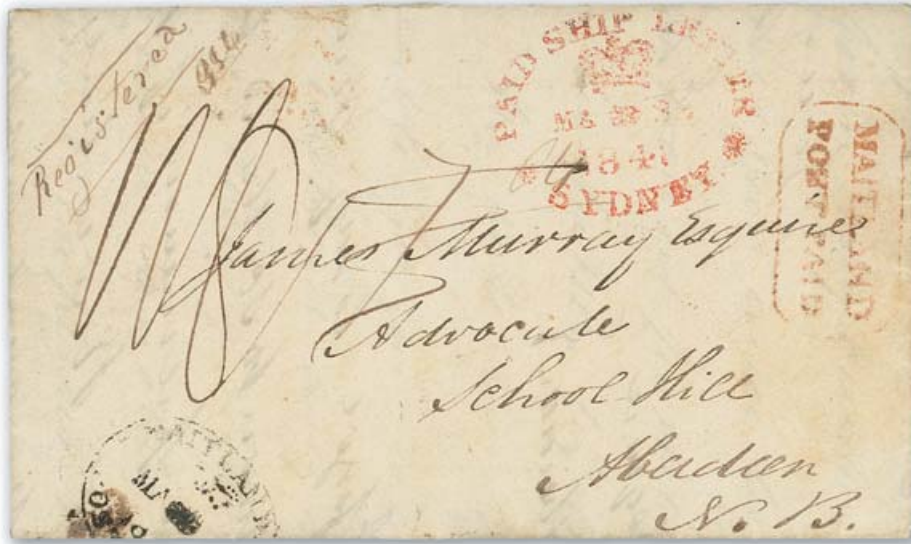 Registered
PAID SHIP LETTER
184
SYDNEY
MAITLAND
POST PAID
James Murray Esquire
Advocate
School Hill
Aberdeen
N. B.
MAITLAND